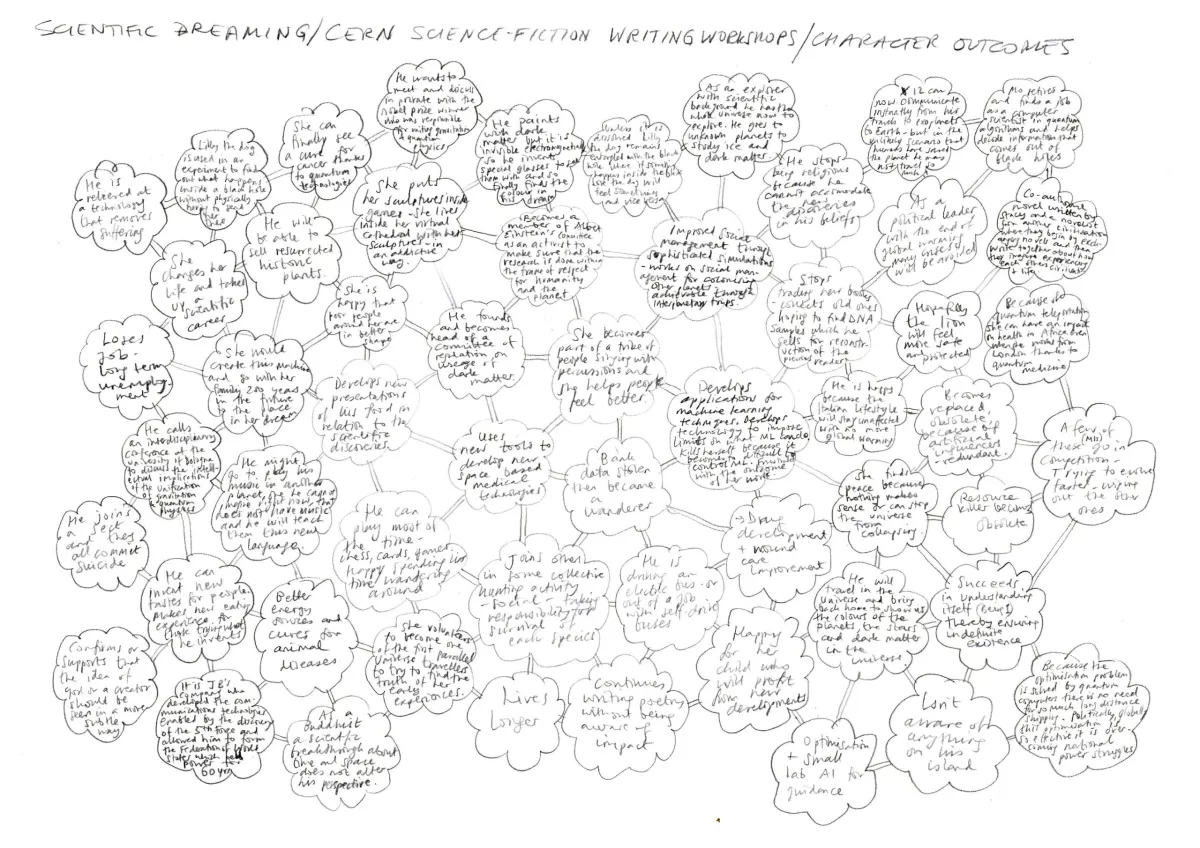 SCIENTIFIC DREAMING/CERN SCIENCE-FICTION WRITING WORKSHOPS/CHARACTER OUTCOMES
He wants to
meet and discuss
in private with the
nobel prize winner
who was responsible
for uniting gravitation
& quantum
physics
As an explorer
with scientific
background he has the
whole universe now to
explore. He goes to
unknown planets to
study ice and
dark matter
X 12 can
now communicate
instantly from her
travels to exoplanets
to Earth - but in the
unlikely scenario that
humans have
the planet he may
not
Mo retires
and finds a job
as a computer
scientist in quantum
algorithms and helps
decode information that
comes out of
black holes
Lilly the dog
is used in an
experiment to find
out what happens
inside a black hole
without physically
having to send
her there
She can
finally see
a cure for
cancer thanks
to quantum
technologies
He paints
with dark
matter but it is
invisible electromagnetically
so he invents
special glasses to see
them with and so
finally finds the
colour in
his dreams
Unless it is
dissolved Lilly
the dog remains
entangled with the black
hole, where if something
happens inside the black
hole the dog will
feel something
and vice versa
He stops
being religious
because he
cannot accomodate
the new
discoveries
in his beliefs
He is
relieved at
a technology
that removes
suffering
She puts
her sculptures inside
games - she lives
inside her virtual
cathedral with her
sculptures - in
an addictive
way.
He will
be able to
sell resurrected
historic
plants.
Becomes a
member of Albert
Einstein's comittee
as an activist to
make sure that the
research is done within
the frame of respect
for humanity
and the
planet
Improved social
management through
sophisticated simulations
- works on social man-
agement for colonising
other planets
achievable through
interplanetary trips.
As a
political leader
with the end of
global warming
many crises
will be avoided
Co-authored
novel written by
Stacy and a novelist
of another civilisation
where they begin by exch-
anging novels and then
write together about how
they imagine experiences
each others civilisation
& life
She
changes her
life and takes
up a
scientific
career
She is
happy that
poor people
around her are
in better
shape
He founds
and becomes
head of a
committee of
regulation on
useage of
dark matter.
She becomes
part of a tribe of
people singing with
percussions and
she helps people
feel better.
Stops
trading new books
- collects old ones
hoping to find DNA
samples which he
sells for reconstr-
uction of the
previous reader
Hopefully
the lion
will feel
more safe
and protected
Because of
quantum teleportation
she can have an impact
on health in Africa even
when she works from
London thanks to
quantum
medicine
Loses
job -
long term
unemploy-
ment
She would
create this machine
and go with her
family 200 years
in the future
to the place
in her dream
Develops new
presentations
of his food in
relation to the
scientific
discoveries.
Develops
applications for
machine learning
techniques. Develops
technology to impose
limits on what ML can do.
Kills herself because it
becomes too difficult to
control ML.
with the outcome
of her work
He is happy
because the
Italian lifestyle
will stay unaffected
with no more
global warming
Becomes
replaced,
obsolete
because of
artificial
influencers
- redundant.
A few of
these (MLs) go in
competition -
Trying to evolve
faster - wiping
out the other
ones
He calls
an interdisciplinary
conference at the
university of Bologna
to discuss the intell-
ectual implications
of the unification
of gravitation
& quantum
physics
He might
go & play his
music in another
planet, one he cannot
now, that
does not have music
and he will teach
them this new
language.
Uses
new tools to
develop new
space based
medical
technologies
Bank
data stolen
then became
a
wanderer
She finds
peace because
nothing makes
sense or can stop
the universe
from
collapsing
Resource
killer become
obsolete
He joins
a sect
and they
all commit
suicide
He can
play most of
the time -
chess, cards, games
happy spending his
time wandering
around
→ Drug
development
+ wound
care
improvement
He can
invent new
tastes for people.
Makes new eating
experience for
those trying what
he invents
Better
energy
sources and
cures for
animal
diseases
Joins others
in some collective
hunting activity
- social - taking
responsibility for
survival of
each species
He is
driving an
electric bus - or
out of a job
with self drive
buses
He will
travel in the
universe and bring
back home to show us
the colours of the
planets, the stars
and dark matter
in the
universe
Succeeds
in understanding
itself (being!)
thereby ensuring
indefinite
existence
Confirms or
supports that
the idea of
god or a creator
should be
seen in a more
subtle
way
She volunteers
to become one
of the first parallel
universe travellers
to try to find the
truth of her
early
experiences.
Happy
for her
child who
will profit
from new
developments
It is JB's
company who
developed the com-
munications technologies
enabled by the discovery
of the 5th force and
allowed him to form
the Federation of World
States which held
power for
60 yrs
As a
Buddhist
a scientific
breakthrough about
time and space
does not alter
his perspective.
Lives
longer
Continues
writing poetry
without being
aware of
impact
Optimisation
+ small
lab AI for
guidance
Isn't
aware of
anything
on his
island
Because the
optimisation problem
is solved by quantum
computers there is no need
for so much long distance
shipping. Politically, globally
this optimisation is
so effective it is over-
coming national
power struggles